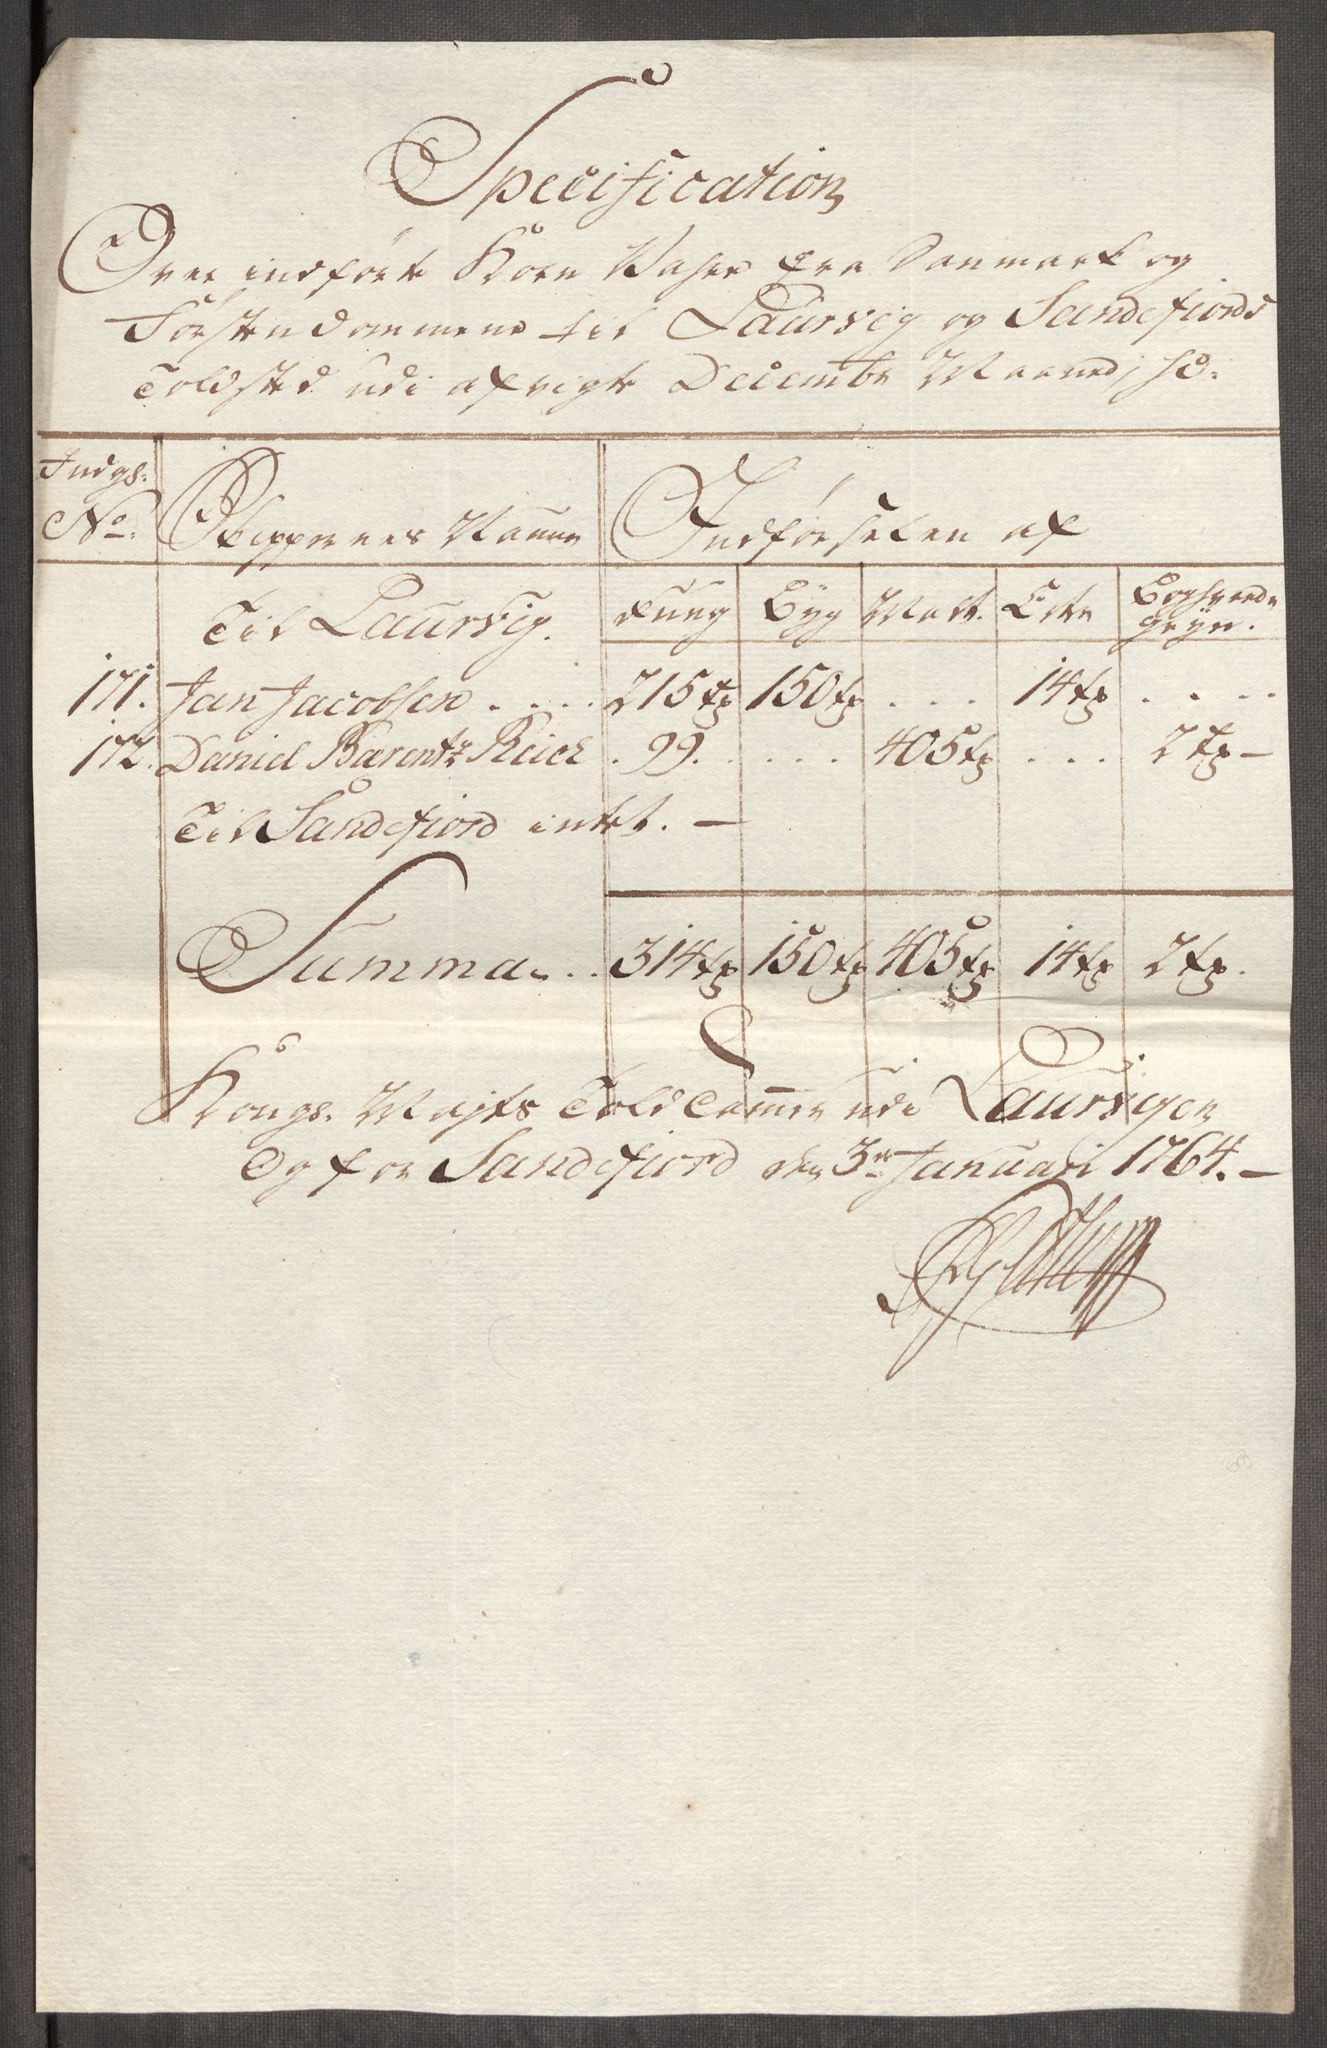 Specification
Over indført Korn Vahre fra Danmark og
Førstendommene til Laurvig og Sandefiords
Toldsted udi afvigte Decembr Maaned, 1763.
Indgs:
No. Skippernes Naune Indførselen af
Til Laurvig. Rug Byg Malt. Erter Boghvede
gryn.
171. Jan Jacobsen .... 215 tr 150 tr ... 14 tr ....
172. Daniel Barentz . 99. .... 405 tr ... 2 tr –
Til Sandefiord intet. –
Summa .. 314 tr 150 tr 405 tr 14 tr 2 tr.
Kongs. Majts Told Cammer udi Laurvigen
Og for Sandefiord den 3n Januari 1764. –